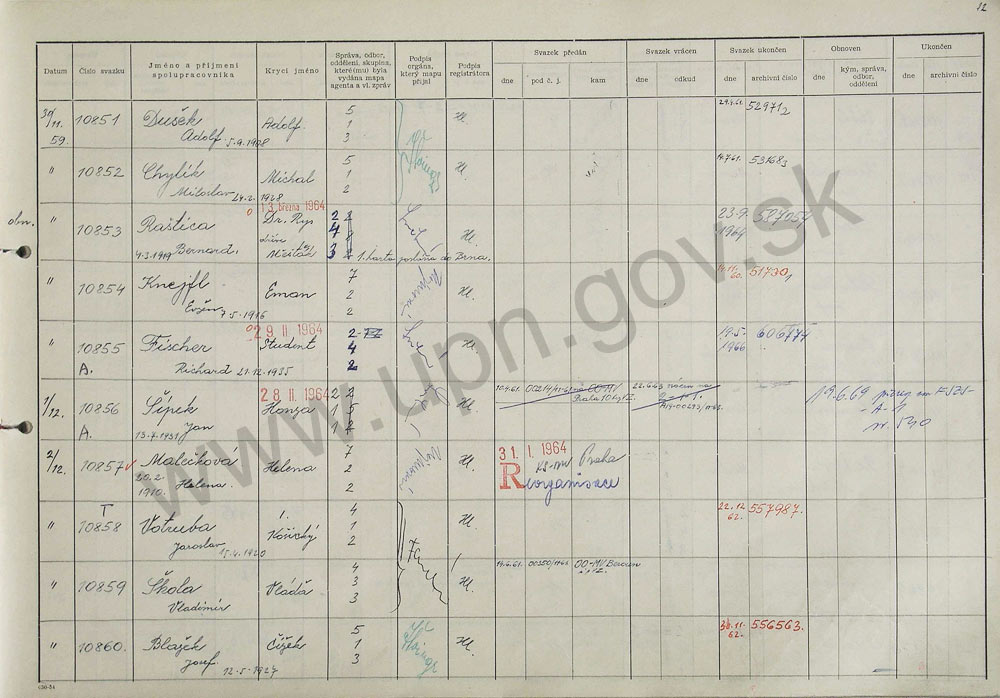 12
Datum
Číslo svazku
Jméno a příjmení spolupracovníka
Krycí jméno
Správa, odbor, oddělení, skupina, které(mu) byla vydána mapa agenta a vl. zpráv
Podpis orgána, který mapu přijal
Podpis registrátora
Svazek předán
dne
pod č. j.
kam
Svazek vrácen
dne
odkud
Svazek ukončen
dne
archivní číslo
Obnoven
dne
kým, správa, odbor, oddělení
Ukončen
dne
archivní číslo
30/11. 59.
10851
Dušek
Adolf 5.9.1908
Adolf
5
1
3
Hl.
29.4.61
52971/2
"
10852
Chylík
Miloslav 24.2.1928
Michal
5
1
2
Hl.
14.7.61.
53168/3
obn.
"
10853
Raštica
Bernard.
4.3.1919
13. března 1964
Dr. Rys
dříve
Měšťák
2
4
3
1. karta poslána do Brna.
Hl.
23.9.
1964
587054
"
10854
Knejfl
Evžen 7.5.1916
Eman
7
2
2
Hl.
60.
51730/1
"
10855
A.
Fischer
Richard 21.12.1935
29 II 1964
Student
2
4
2
Hl.
19.5.
1966
606777
1/12.
10856
A.
Šípek
Jan
13.7.1931
28 II 1964
Honza
Hl.
10.4.61.
00-MV
22.6.63
19.6.69
- A -
"
2/12.
10857
Malečková
20.2.
1910. Helena.
Helena
7
2
2
Hl.
31. I. 1964
KS-MV Praha
Reorganisace
"
T
10858
Votruba
Jaroslav 15.4.1920
Košický
4
1
2
Hl.
22.12
62.
557987.
"
10859
Škola
Vladimír
Vláďa
4
3
3
Hl.
14.6.61.
00-MV Beroun
"
10860.
Blažek
Josef 12.5.1927
Čížek
5
1
3
Hl.
30.11.
62.
556563.
www.upn.gov.sk